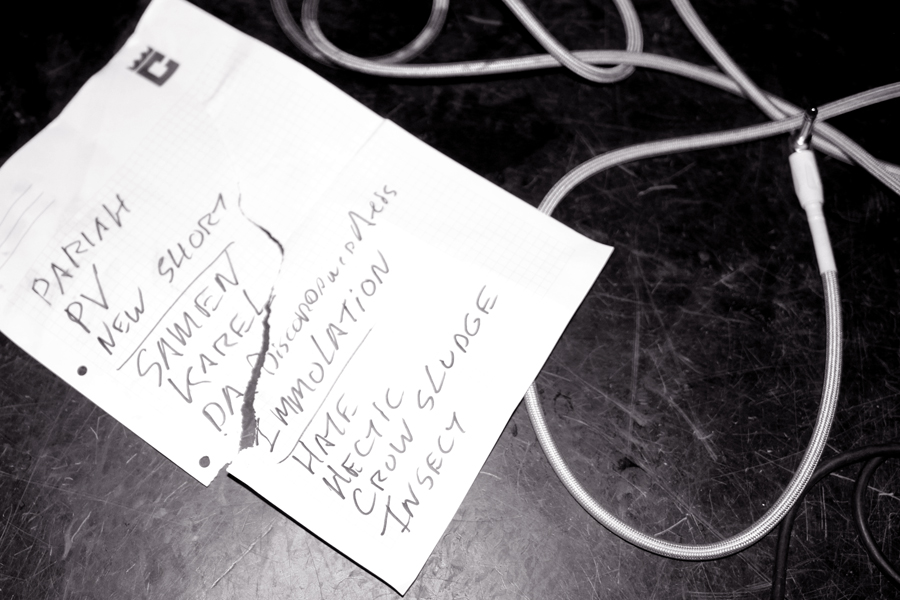 PARIAH
PV
NEW SHORT
SAMEN
KAREL
DA
IMMOLATION
HATE
HECTIC
CROW SLUDGE
INSECT